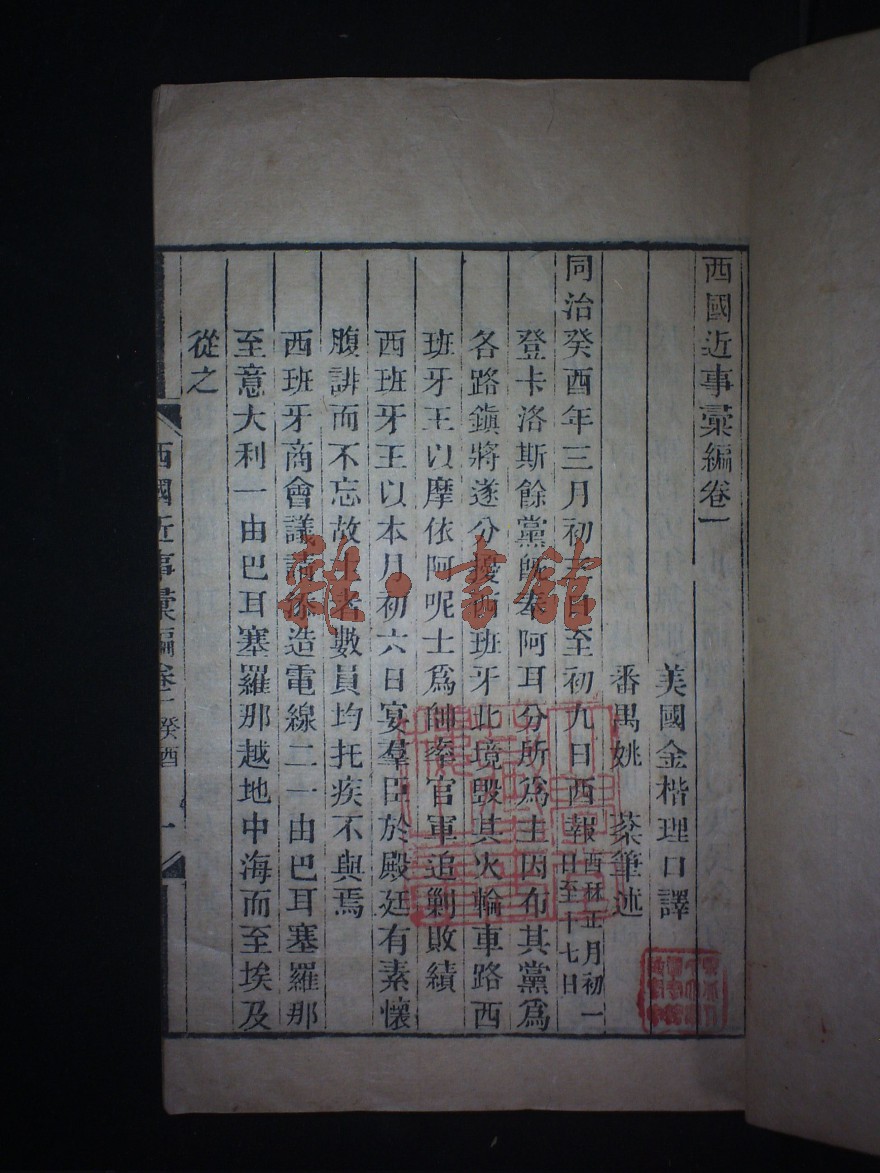 西國近事彙編卷一
美國金楷理口譯
番禺姚棻筆述
同治癸酉年三月初 日至初九日西報西秝正月初一日至十七日
登卡洛斯餘黨既奉阿耳分所爲主因布其黨爲
各路鎭將遂分擾西班牙北境毀其火輪車路西
班牙王以摩依阿呢士爲帥率官軍追剿敗績
西班牙王以本月初六日宴羣臣於殿廷有素懷
腹誹而不忘故 者數員均托疾不與焉
西班牙商會議請添造電線二一由巴耳塞羅那
至意大利一由巴耳塞羅那越地中海而至埃及
從之
西國近事彙編卷一 癸酉 一
雜·書館